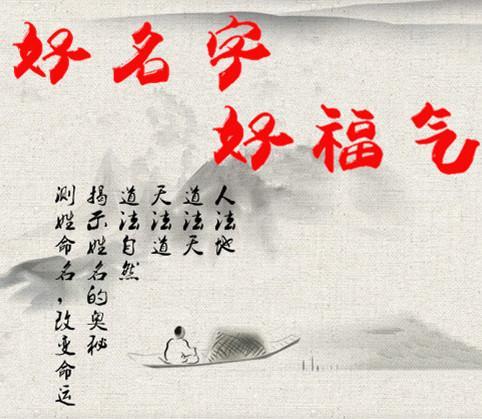 好名字
好福气
人法地
道法天
天法道
道法自然
揭示姓名的奥秘
测姓命名，改变命运